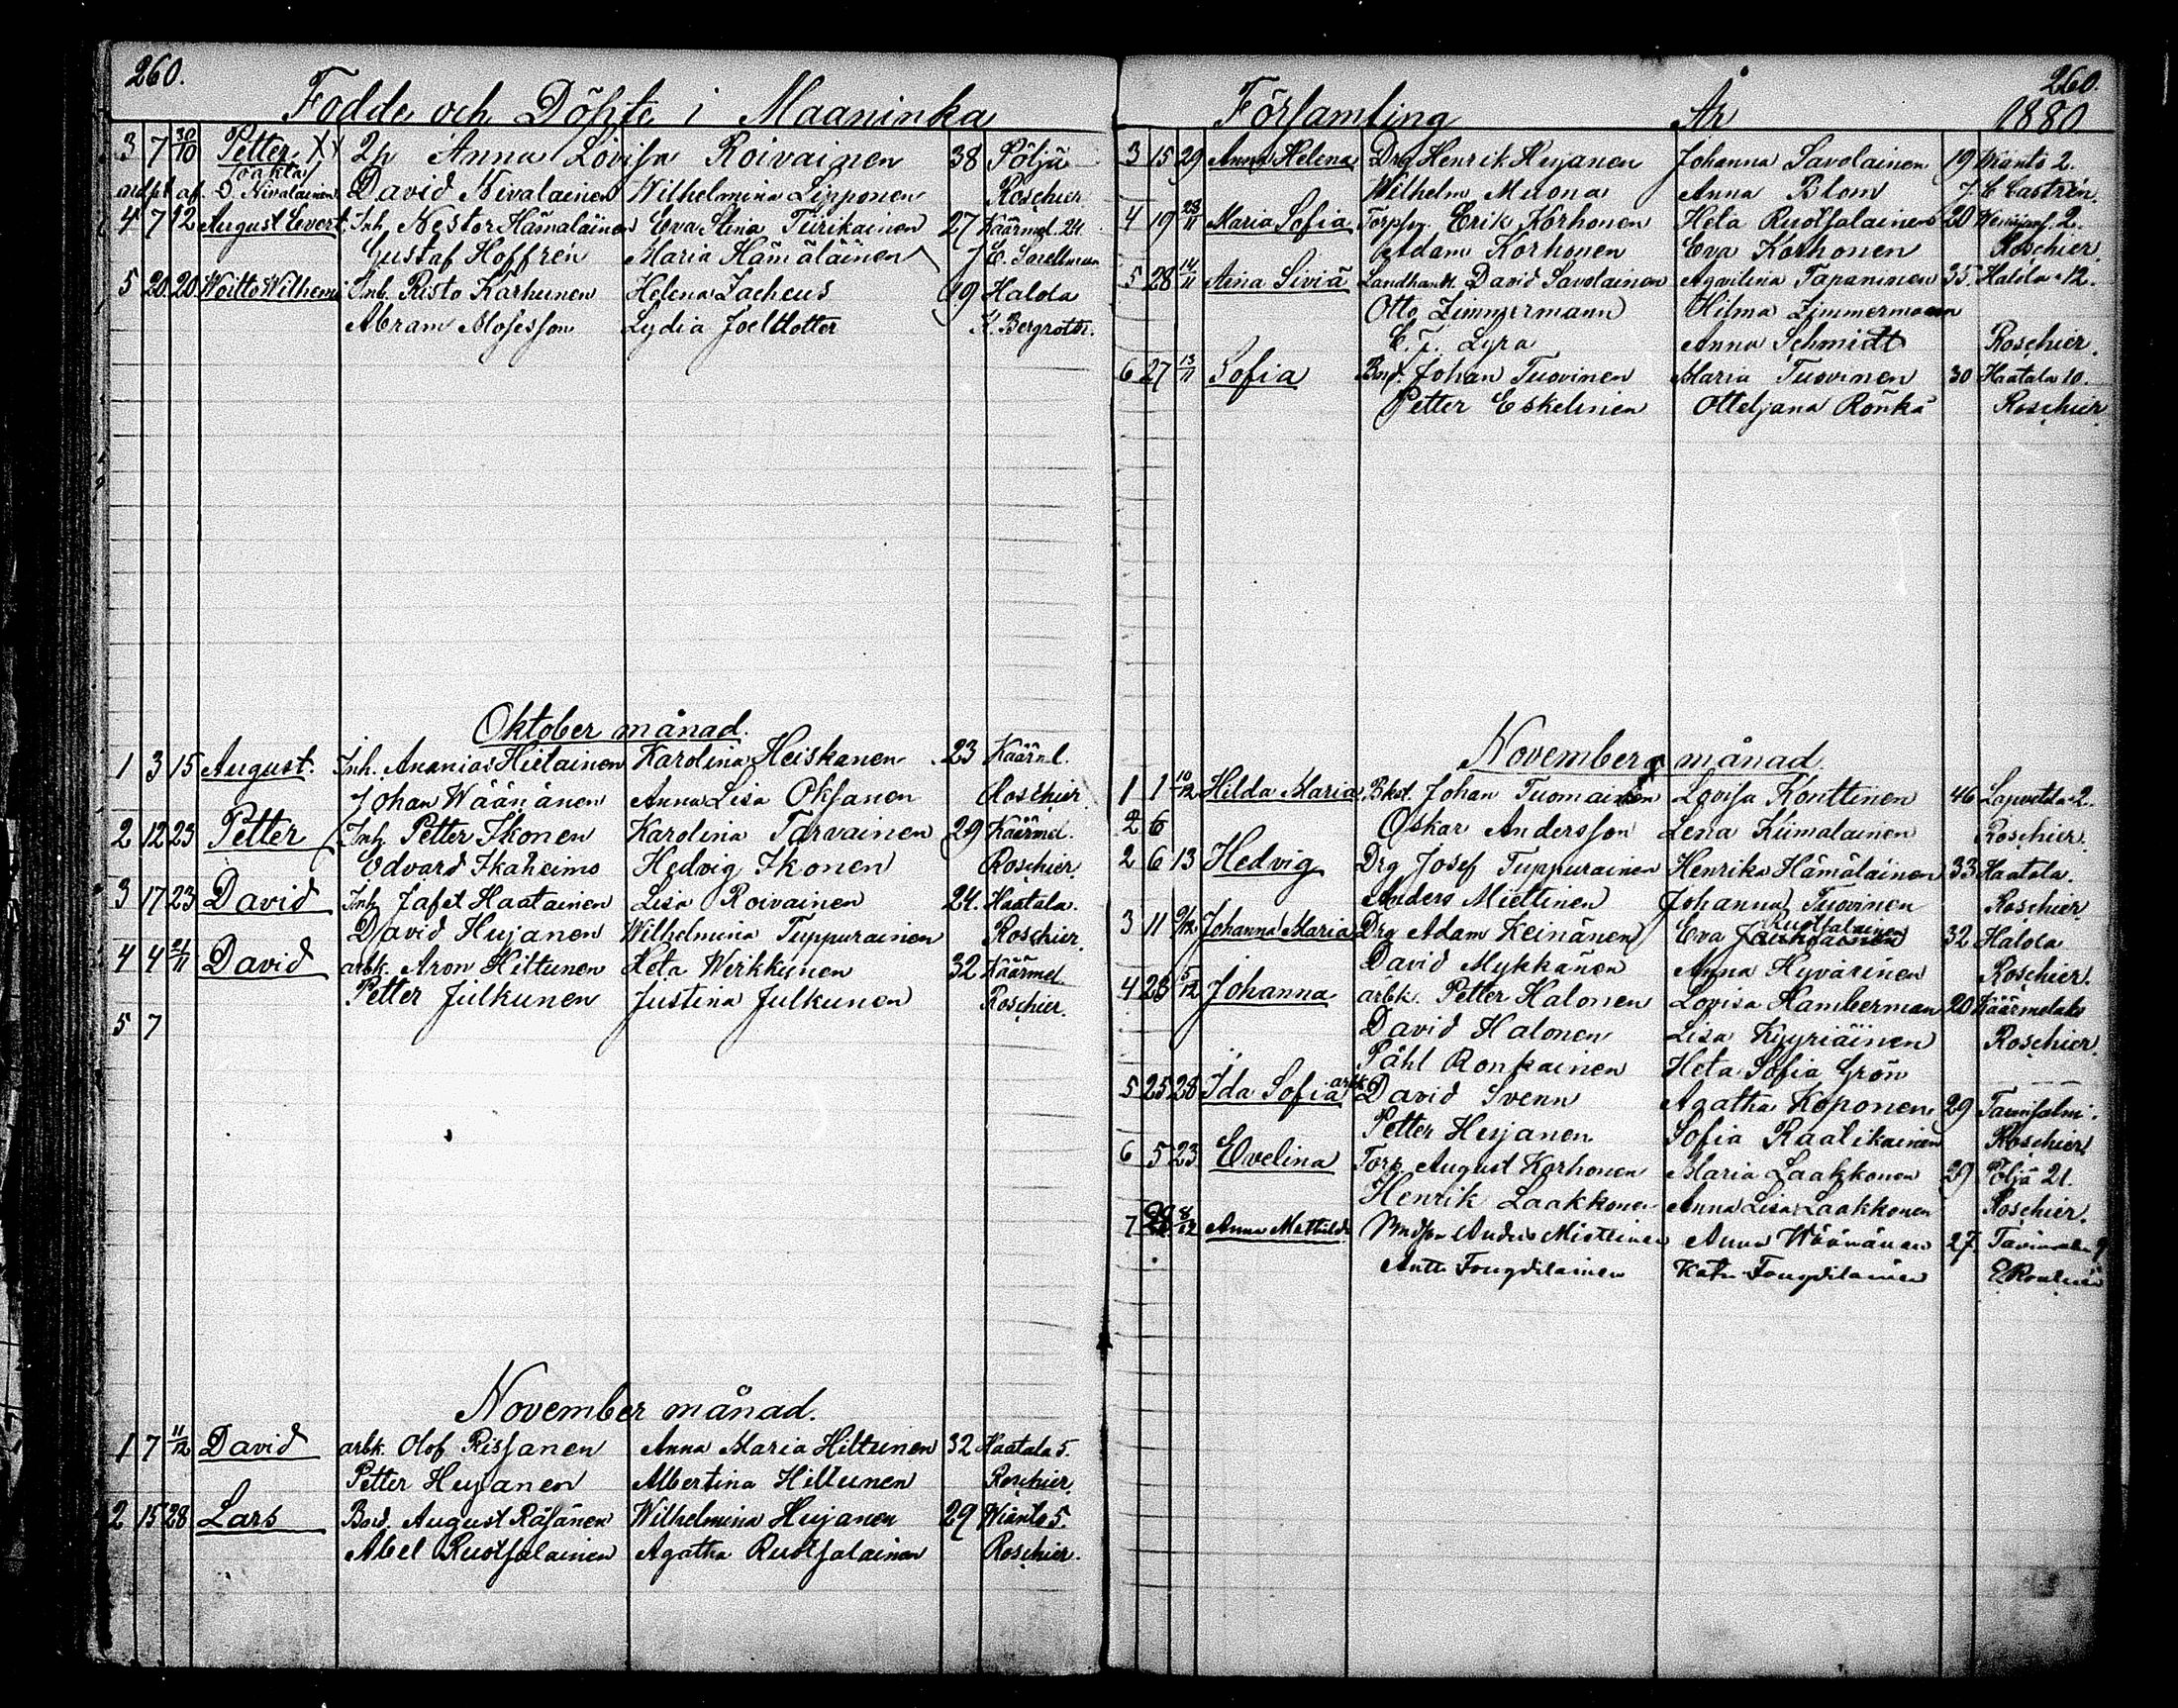 260.
Födde och Döpte i Maaninka
3 7 30/10 Petter XX 2n Anna Lovisa Roivainen 38 Pöljä
Joakla
adpt af. D Nivalainen David Nivalainen Wilhelmina Lipponen Roschier
4 7 12 August Evert Inh. Nestor Hämäläinen Eva Stina Tiirikainen 27 Käärmel. 24.
Gustaf Hoffrén Maria Hämäläinen
5 20 20 Woitto Wilhem Inh. Risto Karhunen Helena Zacheus 19 Halola
Abram Mosesson Lydia Joeldotter K. Bergroth.
Oktober månad.
1 3 15 August. Inh. Ananias Hielainen Karolina Heiskanen 23 Käärml.
Johan Wäänänen Anna Lisa Oksanen Roschier
2 12 23 Petter Inh. Petter Ikonen Karolina Tarvainen 29 Käärmel.
Edvard Ikaheimo Hedvig Ikonen Roschier.
3 17 23 David Inh. Jafet Haatainen Lisa Roivainen 24. Haatala.
David Hujanen Wilhelmina Tuppurainen Roschier.
4 4 21/11 David arbk. Aron Hiltunen Heta Werkkunen 32 Käärmel
Petter Julkunen Justina Julkunen Roschier.
5 7
November månad.
1 7 11/12 David arbk. Olof Rissanen Anna Maria Hiltunen 32 Haatala 5.
Petter Hujanen Albertina Hiltunen Roschier.
2 15 28 Lars Bond. August Räsänen Wilhelmina Hujanen 29 Wianto 5.
Abel Ruotsalainen Agatha Ruotsalainen Roschier.
260.
Församling År 1880
3 15 29 Anna Helena Drg Henrik Hujanen Johanna Savolainen 19 Wianto 2.
Wilhelm Muona Anna Blom J. C Castrén.
4 19 23/11 Maria Sofia Torpson Erik Korhonen Heta Ruotsalainen 20
Adam Korhonen Eva Korhonen Roschier.
5 28 14/11 Aina Siviä Landhandl. David Savolainen Aqvilina Tapaninen 35. Halola 12.
Otto Zimmermann Hilma Zimmermann
C. J. Lyra Anna Schmidt Roschier.
6 27 13/11 Sofia Bond. Johan Tuovinen Maria Tuovinen 30 Haatala 10.
Petter Eskelinen Otteljana Rönkä Roschier.
November månad
1 1 10/12 Hilda Maria Bkst. Johan Tuomainen Lovisa Konttinen 46 Lapvetela 2.
2 6 Oskar Andersson Lena Kiimalainen Roschier.
2 6 13 Hedvig Drg Josef Tuppurainen Henrika Hämäläinen 33 Haatala.
Anders Miettinen Johanna Tuovinen Roschier
Ruotsalainen
3 11 9/12 Johanna Maria Drg Adam Keinänen Eva 32 Halola
David Mykkänen Anna Hyvärinen Roschier.
4 28 5/12 Johanna arbk. Petter Halonen Lovisa Hamberman 20 Käärmelaks
David Halonen Lisa Kyyriäinen Roschier.
Påhl Ronkainen Heta Sofia Grön
5 25 28 Ida Sofia arbk David Svenn Agatha Koponen 29 Tavinsalmi.
Petter Hujanen Sofia Raatikainen Roschier
6 5 23 Evelina Torp. August Korhonen Maria Laakkonen 29 Pöljä 21.
Henrik Laakkonen Anna Lisa Laakkonen Roschier.
7 8/12 Anna Mathilda Anders Miettinen Anna Wäänänen 27
Antti Fougdilainen Katri Fougdilainen